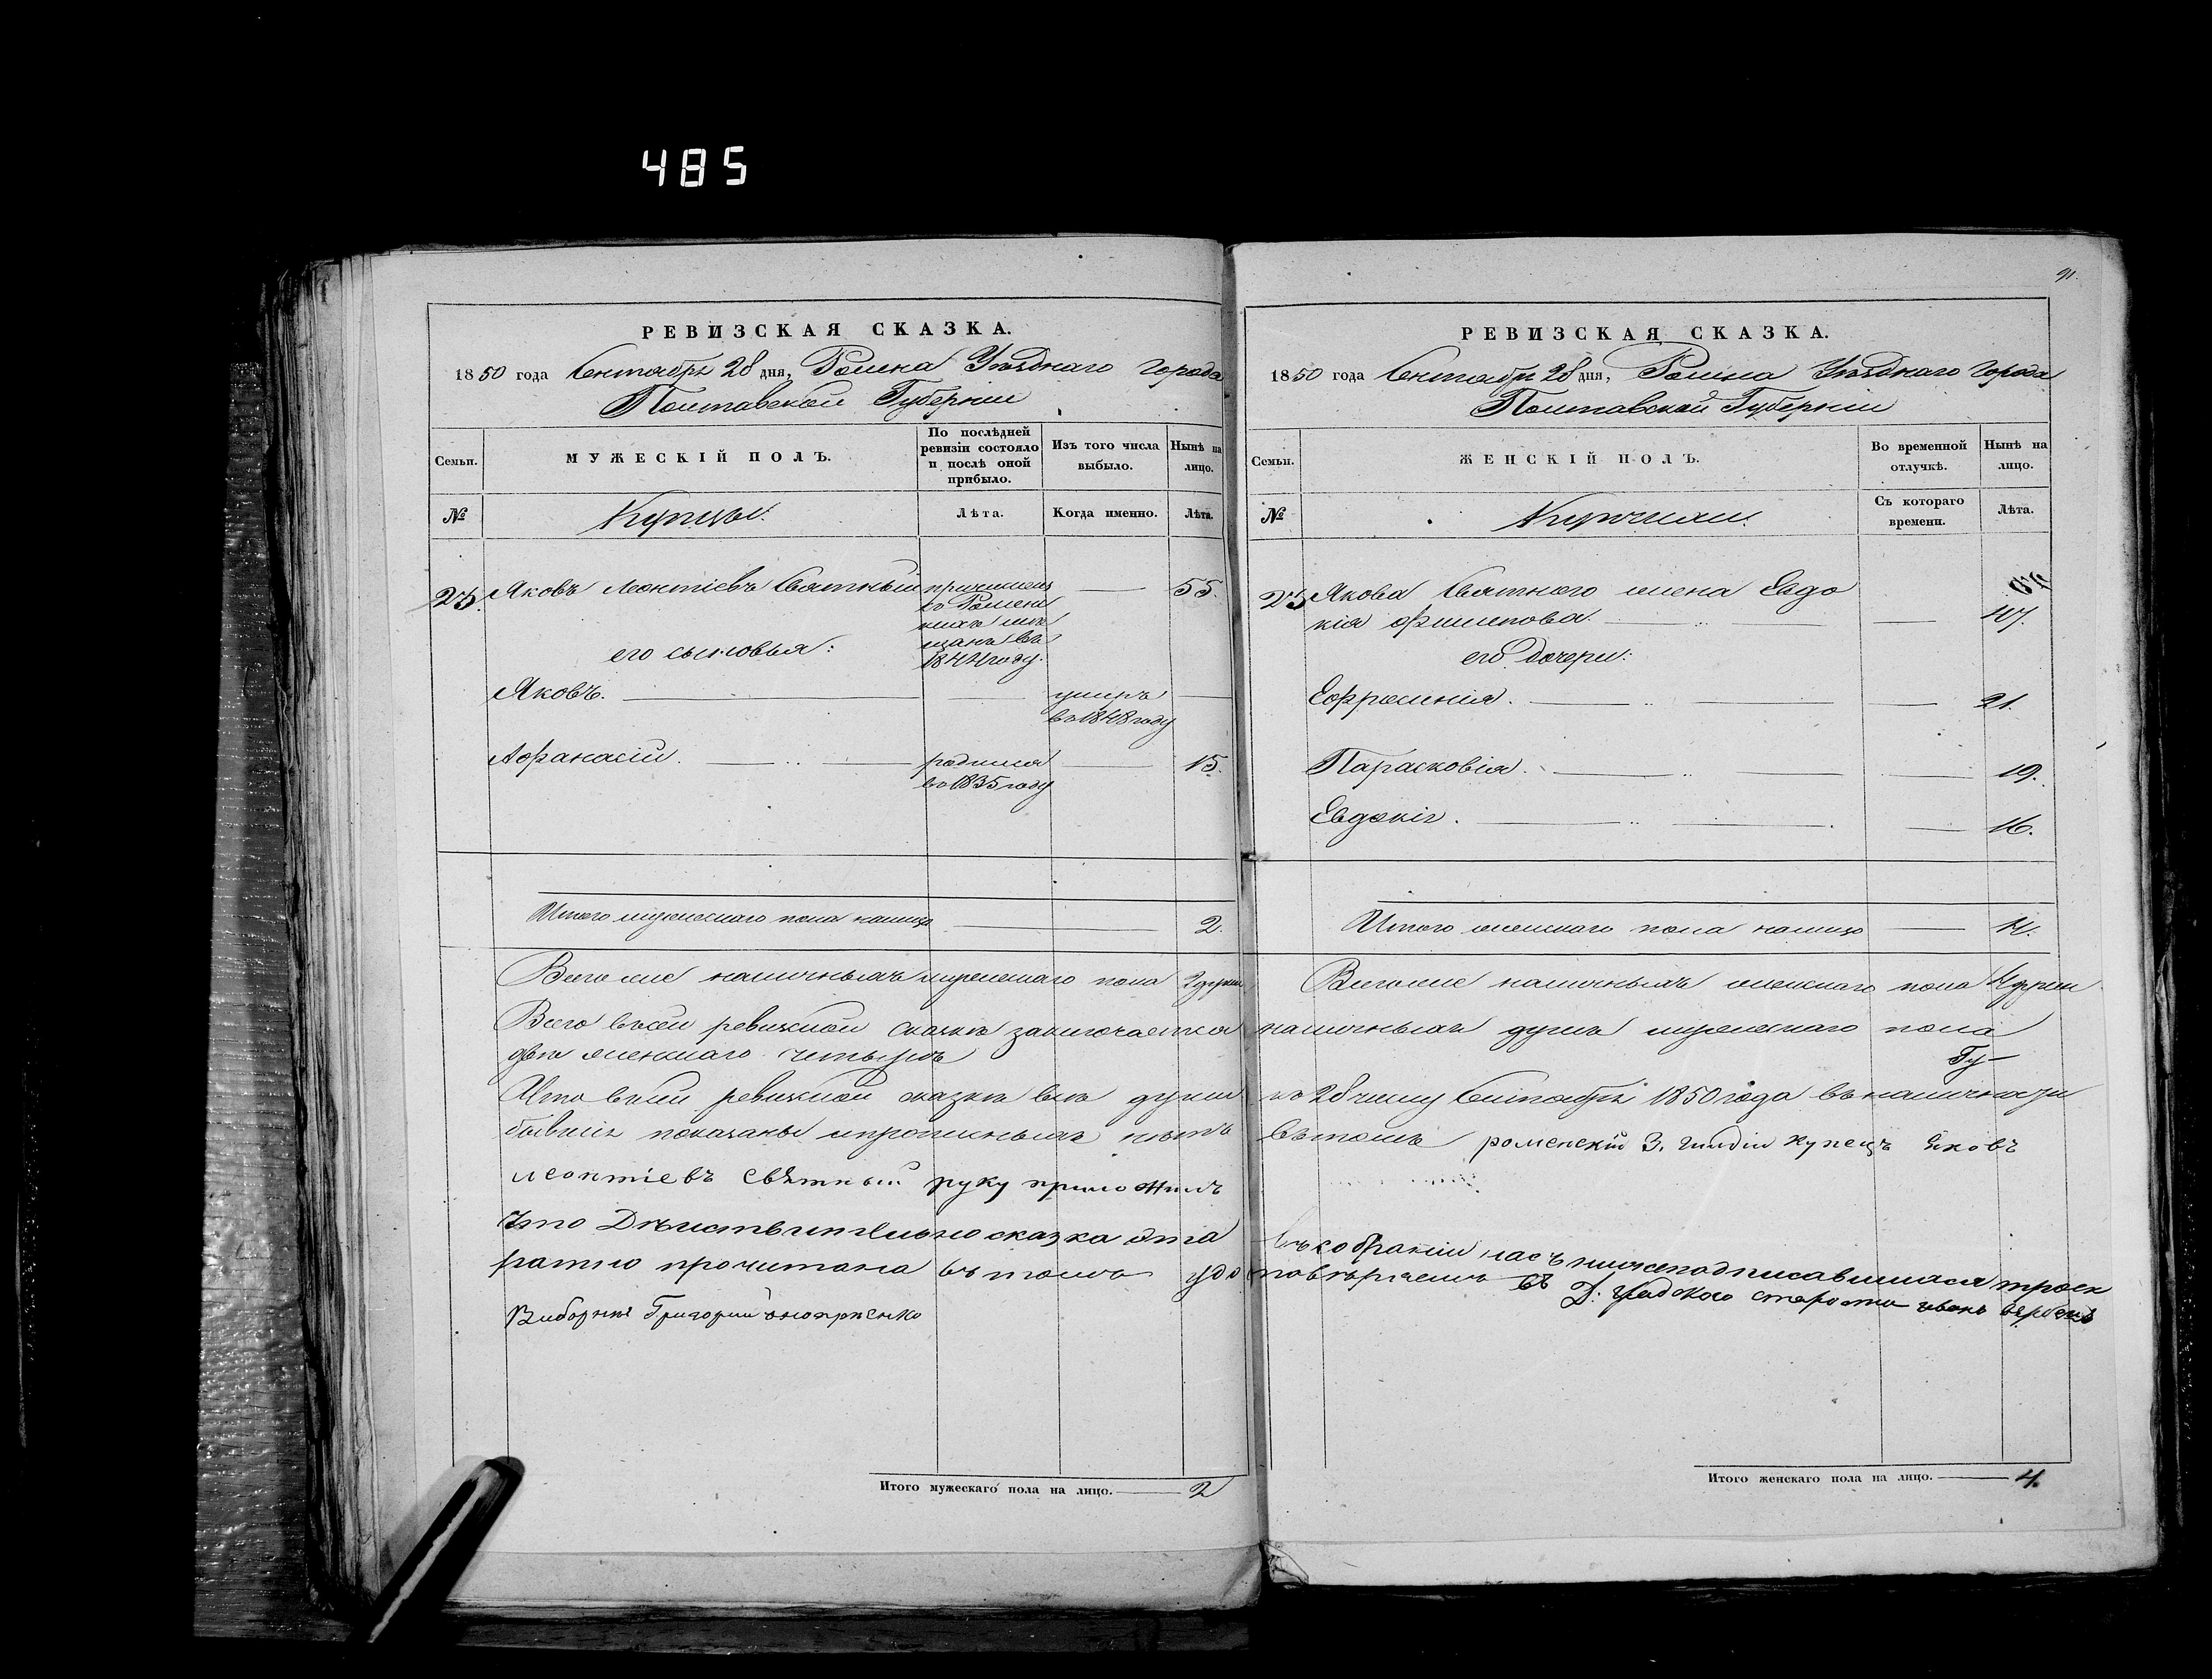 485
91.
РЕВИЗСКАЯ СКАЗКА.
1850 года Сентября 28 дня, Ромна Уѣзднаго Города
Полтавской Губерніи
Семьи.
МУЖЕСКІЙ ПОЛЪ.
По послѣдней ревизіи состояло и послѣ оной прибыло.
Изъ того числа выбыло.
Нынѣ на лицо.
№
Купцы.
Лѣта.
Когда именно.
Лѣта.
25. Яковъ Леонтіевъ Святный причисленъ — 55.
въ 1844 году.
его сыновья:
Яковъ. умеръ
въ 1848 году
Афанасій. родился — 15.
въ 1835 году
Итого мужескаго пола налицо 2.
Всего же наличныхъ мужескаго пола 2 души
РЕВИЗСКАЯ СКАЗКА.
1850 года Сентября 28 дня, Ромна Уѣзднаго Города
Полтавской Губерніи
Семьи.
ЖЕНСКІЙ ПОЛЪ.
Во временной отлучкѣ.
Нынѣ на лицо.
№
Съ котораго времени.
Лѣта.
25 Якова Святного жена Евдо
кія Филипова. 47.
его дочери:
Ефросинія. 21.
Парасковія. 19.
Евдокія. 16.
Итого женскаго пола налицо 4.
Всего же наличныхъ женскаго пола 4 души
Всего въ сей ревизкой сказкѣ заключается наличныхъ душъ мужескаго пола
двѣ женскаго четыре
Что въ сей ревизкой сказкѣ всѣ души къ 28 числу Сентября 1850 года въ наличности
бывшія показаны и прописныхъ нѣтъ въ томъ роменскій 3. гилдіи купецъ Яковъ
леонтіевъ Свѣтный руку приложилъ
Что Дѣиствительно сказка эта въ собраніи насъ нижеподписавшихся троек
ратно прочитана въ томъ удостовѣряемъ
Д. градского старости иванъ
Виборный Григорий
Итого мужескаго пола на лицо. — 2
Итого женскаго пола на лицо. — 4.